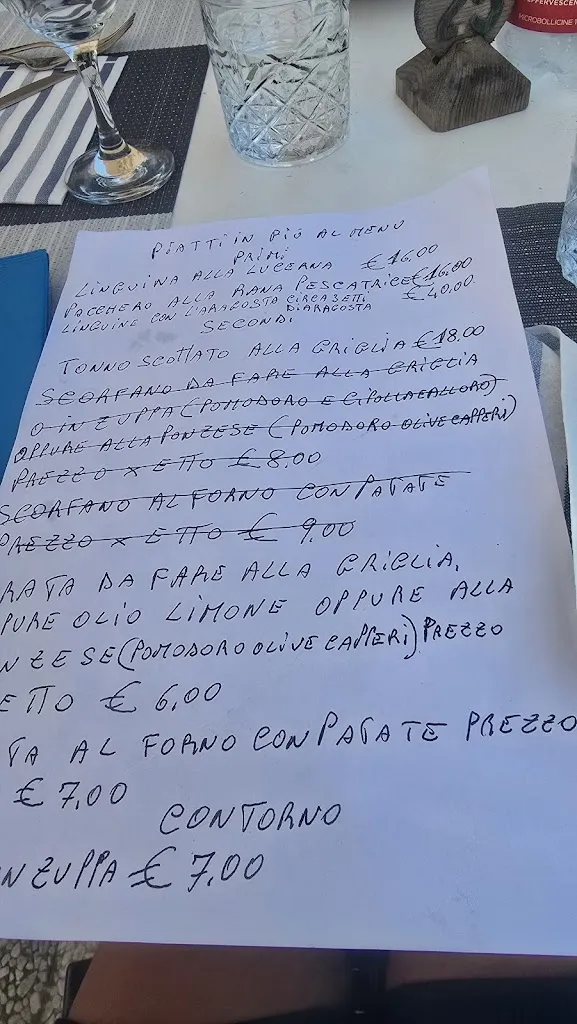 EFFERVESCEN
MICROBOLLICINE
PIATTI IN PIÙ AL MENU
PRIMI
LINGUINA ALLA LUCERNA €16,00
PACCHERO ALLA RANA PESCATRICE €16,00
LINGUINE CON L'ARAGOSTA CIRCA 3ETTI DIARAGOSTA €40,00
SECONDI
TONNO SCOTTATO ALLA GRIGLIA €18.00
SCORFANO DA FARE ALLA GRIGLIA
O IN ZUPPA (POMODORO E CIPOLLA E ALLORO)
OPPURE ALLA PONZESE (POMODORO OLIVE CAPPERI)
PREZZO X ETTO €8,00
SCORFANO AL FORNO CON PATATE
PREZZO X ETTO € 9,00
RATA DA FARE ALLA GRIGLIA,
PURE OLIO LIMONE OPPURE ALLA
NZESE (POMODORO OLIVE CAPPERI) PREZZO
ETTO € 6,00
TA AL FORNO CON PATATE PREZZO
€ 7,00
CONTORNO
N ZUPPA € 7,00